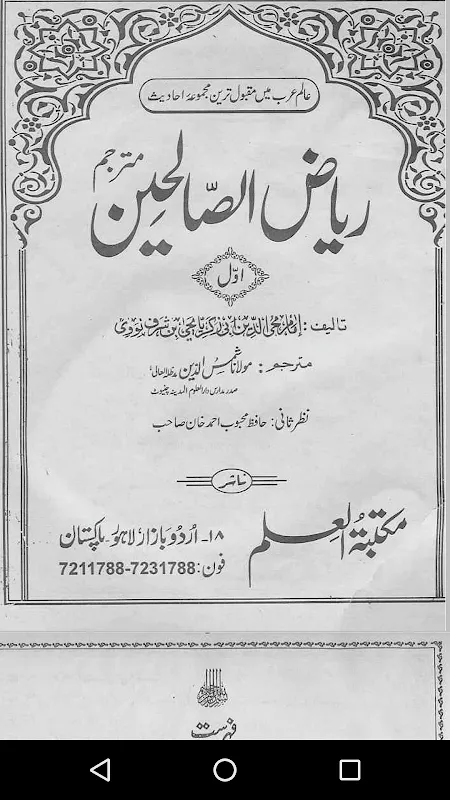 عالم عرب میں مقبول ترین مجموعۂ احادیث
ریاض الصّالحین مترجم
اوّل
تالیف: امام محی الدین ابی زکریا یحییٰ بن شرف نووی
مترجم: مولانا شمس الدین مدظلہ العالی
صدر مدارس دارالعلوم المدینہ چنیوٹ
نظر ثانی: حافظ محبوب احمد خان صاحب
ناشر
مکتبۃ العلم
۱۸- اُردو بازار لاہور۔ پاکستان
فون: 7211788-7231788
فہرست